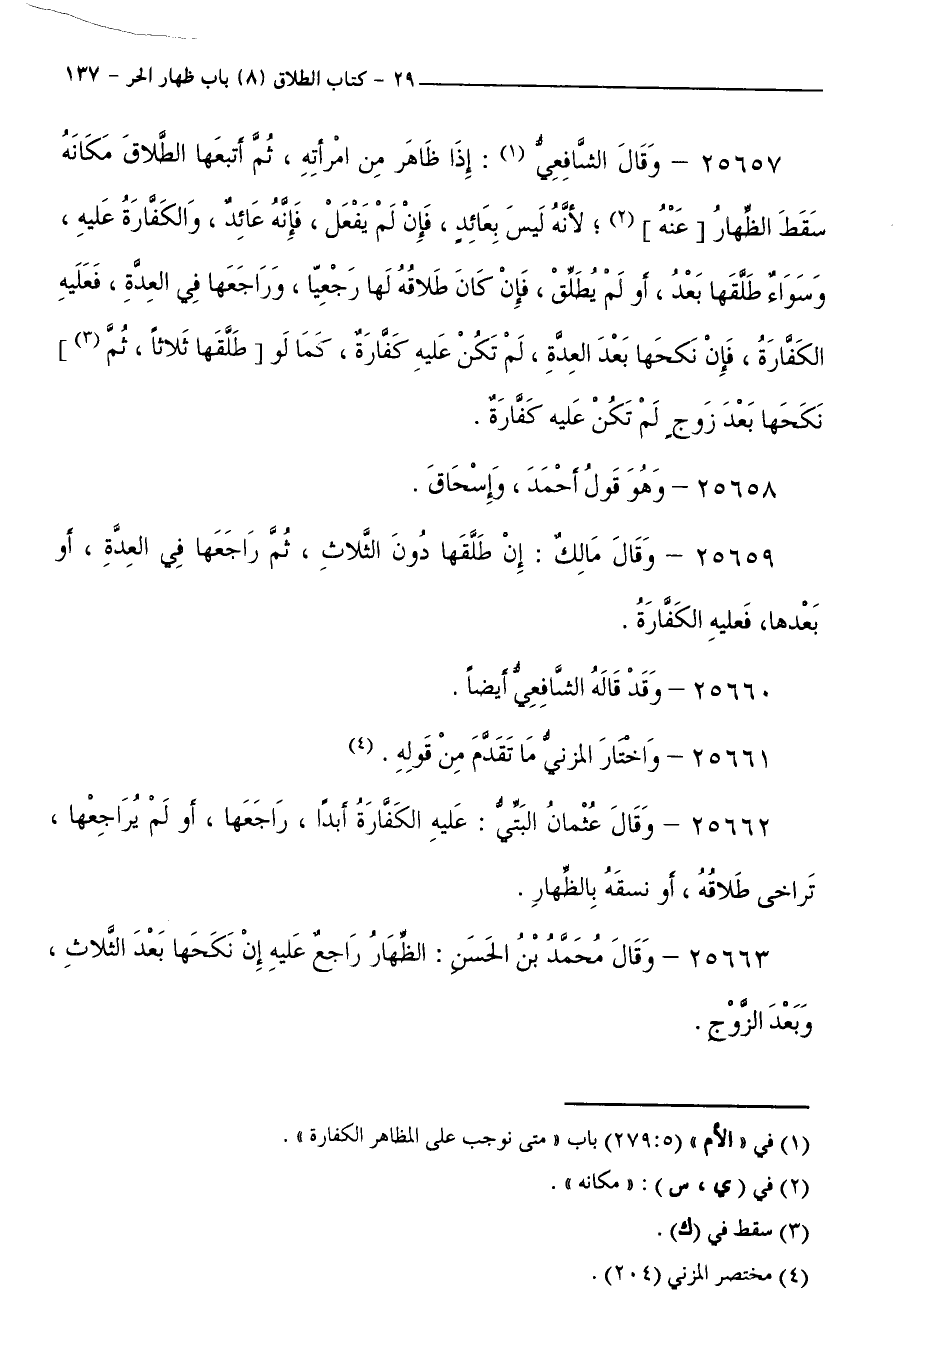 ٢٩ - كتاب الطلاق (٨) باب ظهار الحر - ١٣٧
٢٥٦٥٧ - وَقَالَ الشَّافِعِيُّ (١) : إِذَا ظَاهَر مِن امرْأتِهِ ، ثُمَّ أتبعَها الطَّلاقَ مَكَانَهُ
سَقَطَ الظِّهارُ [ عَنْهُ ] (٢) ؛ لأنَّهُ ليسَ بِعَائِدٍ ، فَإِنْ لَمْ يَفْعَلْ ، فَإِنَّهُ عَائِدٌ ، وَالكَفَّارَةُ عَليهِ ،
وَسَوَاءٌ طَلَّقَها بَعْدُ ، أو لَمْ يُطَلِّقْ ، فَإِنْ كَانَ طَلاقُهُ لَها رَجْعِيّا ، وَرَاجَعَها فِي العِدَّةِ ، فَعَلَيهِ
الكَفَّارَةُ ، فَإِنْ نَكحَها بَعْدَ العِدَّةِ ، لَمْ تَكُنْ عَليهِ كَفَّارَةٌ ، كَمَا لَو [ طَلَّقَها ثَلاثاً ، ثُمَّ (٣) ]
نَكَحَها بَعْدَ زَوجٍ لَمْ تَكُنْ عَليه كَفَّارَةٌ .
٢٥٦٥٨ - وَهُوَ قَولُ أحْمَدَ ، وَإِسْحَاقَ .
٢٥٦٥٩ - وَقَالَ مَالِكٌ : إِنْ طَلَّقَها دُونَ الثَّلاثِ ، ثُمَّ رَاجَعَها فِي العِدَّةِ ، أو
بَعْدها، فَعليهِ الكَفَّارَةُ .
٢٥٦٦٠ - وَقَدْ قَالَهُ الشَّافِعِيُّ أيضاً .
٢٥٦٦١ - وَاخْتَارَ المزنيُّ مَا تَقَدَّمَ مِنْ قَولِهِ . (٤)
٢٥٦٦٢ - وَقَالَ عُثْمانُ البَتِّيُّ : عَليهِ الكَفَّارَةُ أبدًا ، رَاجَعَها ، أو لَمْ يُرَاجِعْها ،
تَراخى طَلاقُهُ ، أو نسقَهُ بِالظِّهارِ .
٢٥٦٦٣ - وَقَالَ مُحَمَّدُ بْنُ الحَسَنِ : الظِّهَارُ رَاجعٌ عَليهِ إِنْ نَكَحَها بَعْدَ الثَّلاثِ ،
وَبَعْدَ الزَّوْجِ .
(١) في « الأم » (٥ : ٢٧٩) باب « متى نوجب على المظاهر الكفارة » .
(٢) في ( ي ، س ) : « مكانه » .
(٣) سقط في (ك) .
(٤) مختصر المزني (٢٠٤) .